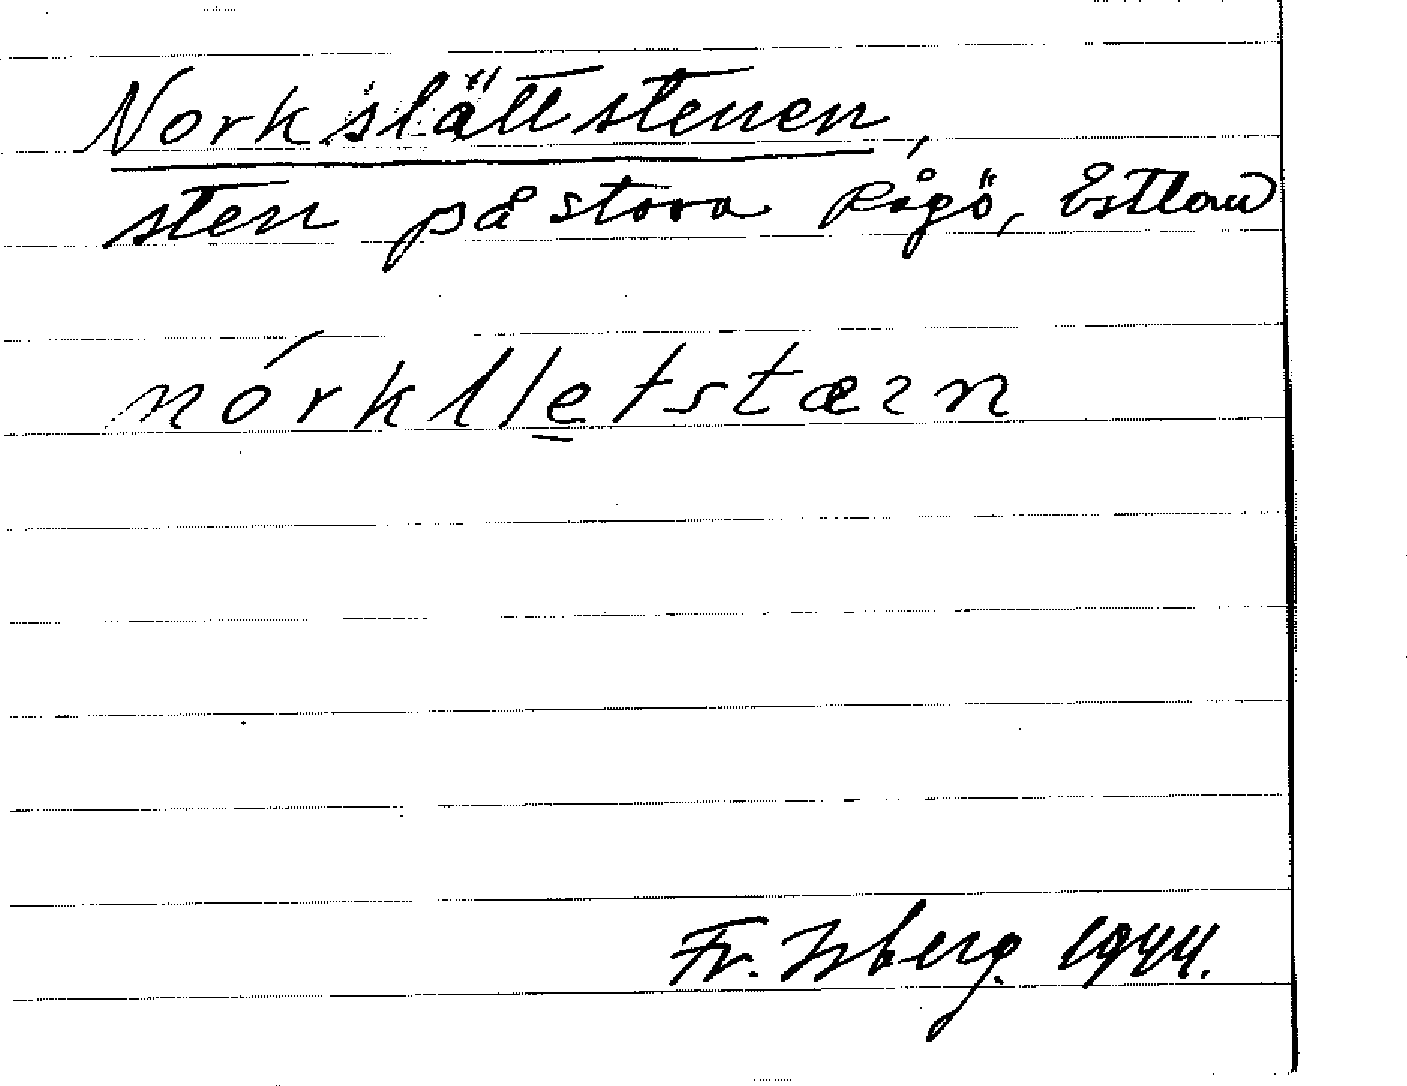 Norkslättstenen,
sten på stora Rågö, Estland
nórkl̥letstæɪn
Fr. Isberg. 1944.